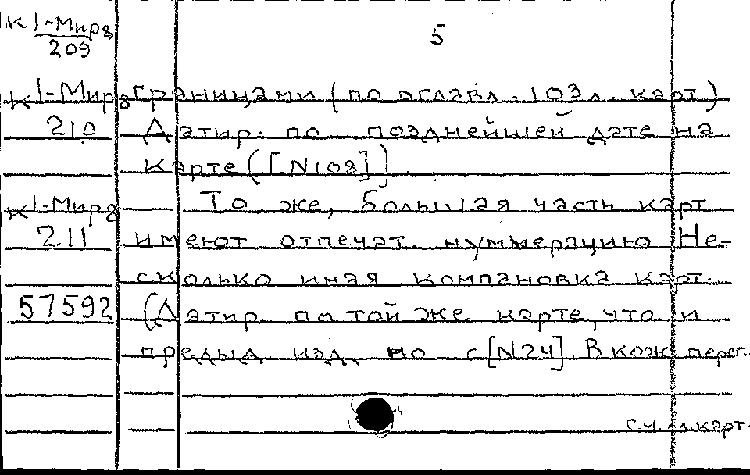 К 1-Мирз
209
5
К 1-Мирз границами (по оглавл. 103 л. карт)
210 Датир. по позднейшей дате на
карте ([N108])
К 1-Мирз То же, большая часть карт
211 имеют отпечат. нуммерацию Не-
сколько иная компановка карт.
57592 (Датир. по той же карте, что и
предыд изд. но с [N24] В кож. переп.